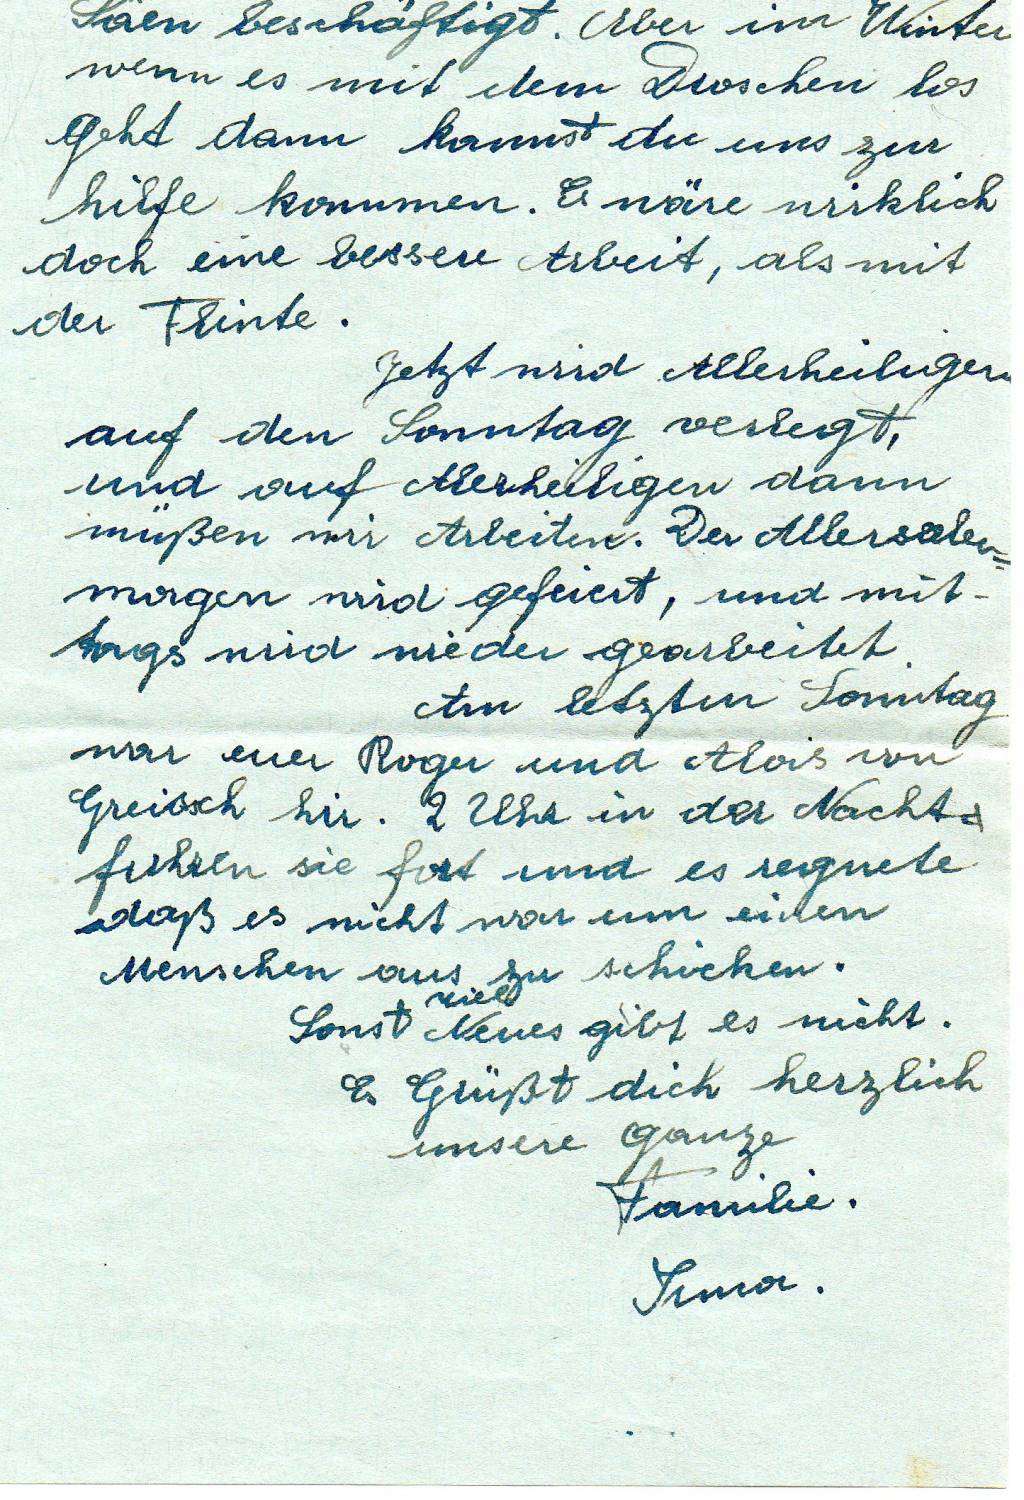 Säen beschäftigt. Aber im Winter
wenn es mit dem Droschen los
geht dann kannst du uns zur
hilfe kommen. Es wäre wirklich
doch eine bessere Arbeit, als mit
der Flinte.
Jetzt wird Allerheiligen
auf den Sonntag verlegt,
und auf Allerheiligen dann
müßen wir Arbeiten. Der Allerseelen=
morgen wird gefeiert, und mit-
tags wird wieder gearbeitet.
Am letzten Sonntag
war euer Roger und Alois von
Greisch hir. 2 Uhr in der Nacht
fuhren sie fort und es regnete
daß es nicht war um einen
Menschen aus zu schicken.
Sonst viel Neues gibt es nicht.
Es Grüßt dich herzlich
unsere ganze
Familie.
Irma.